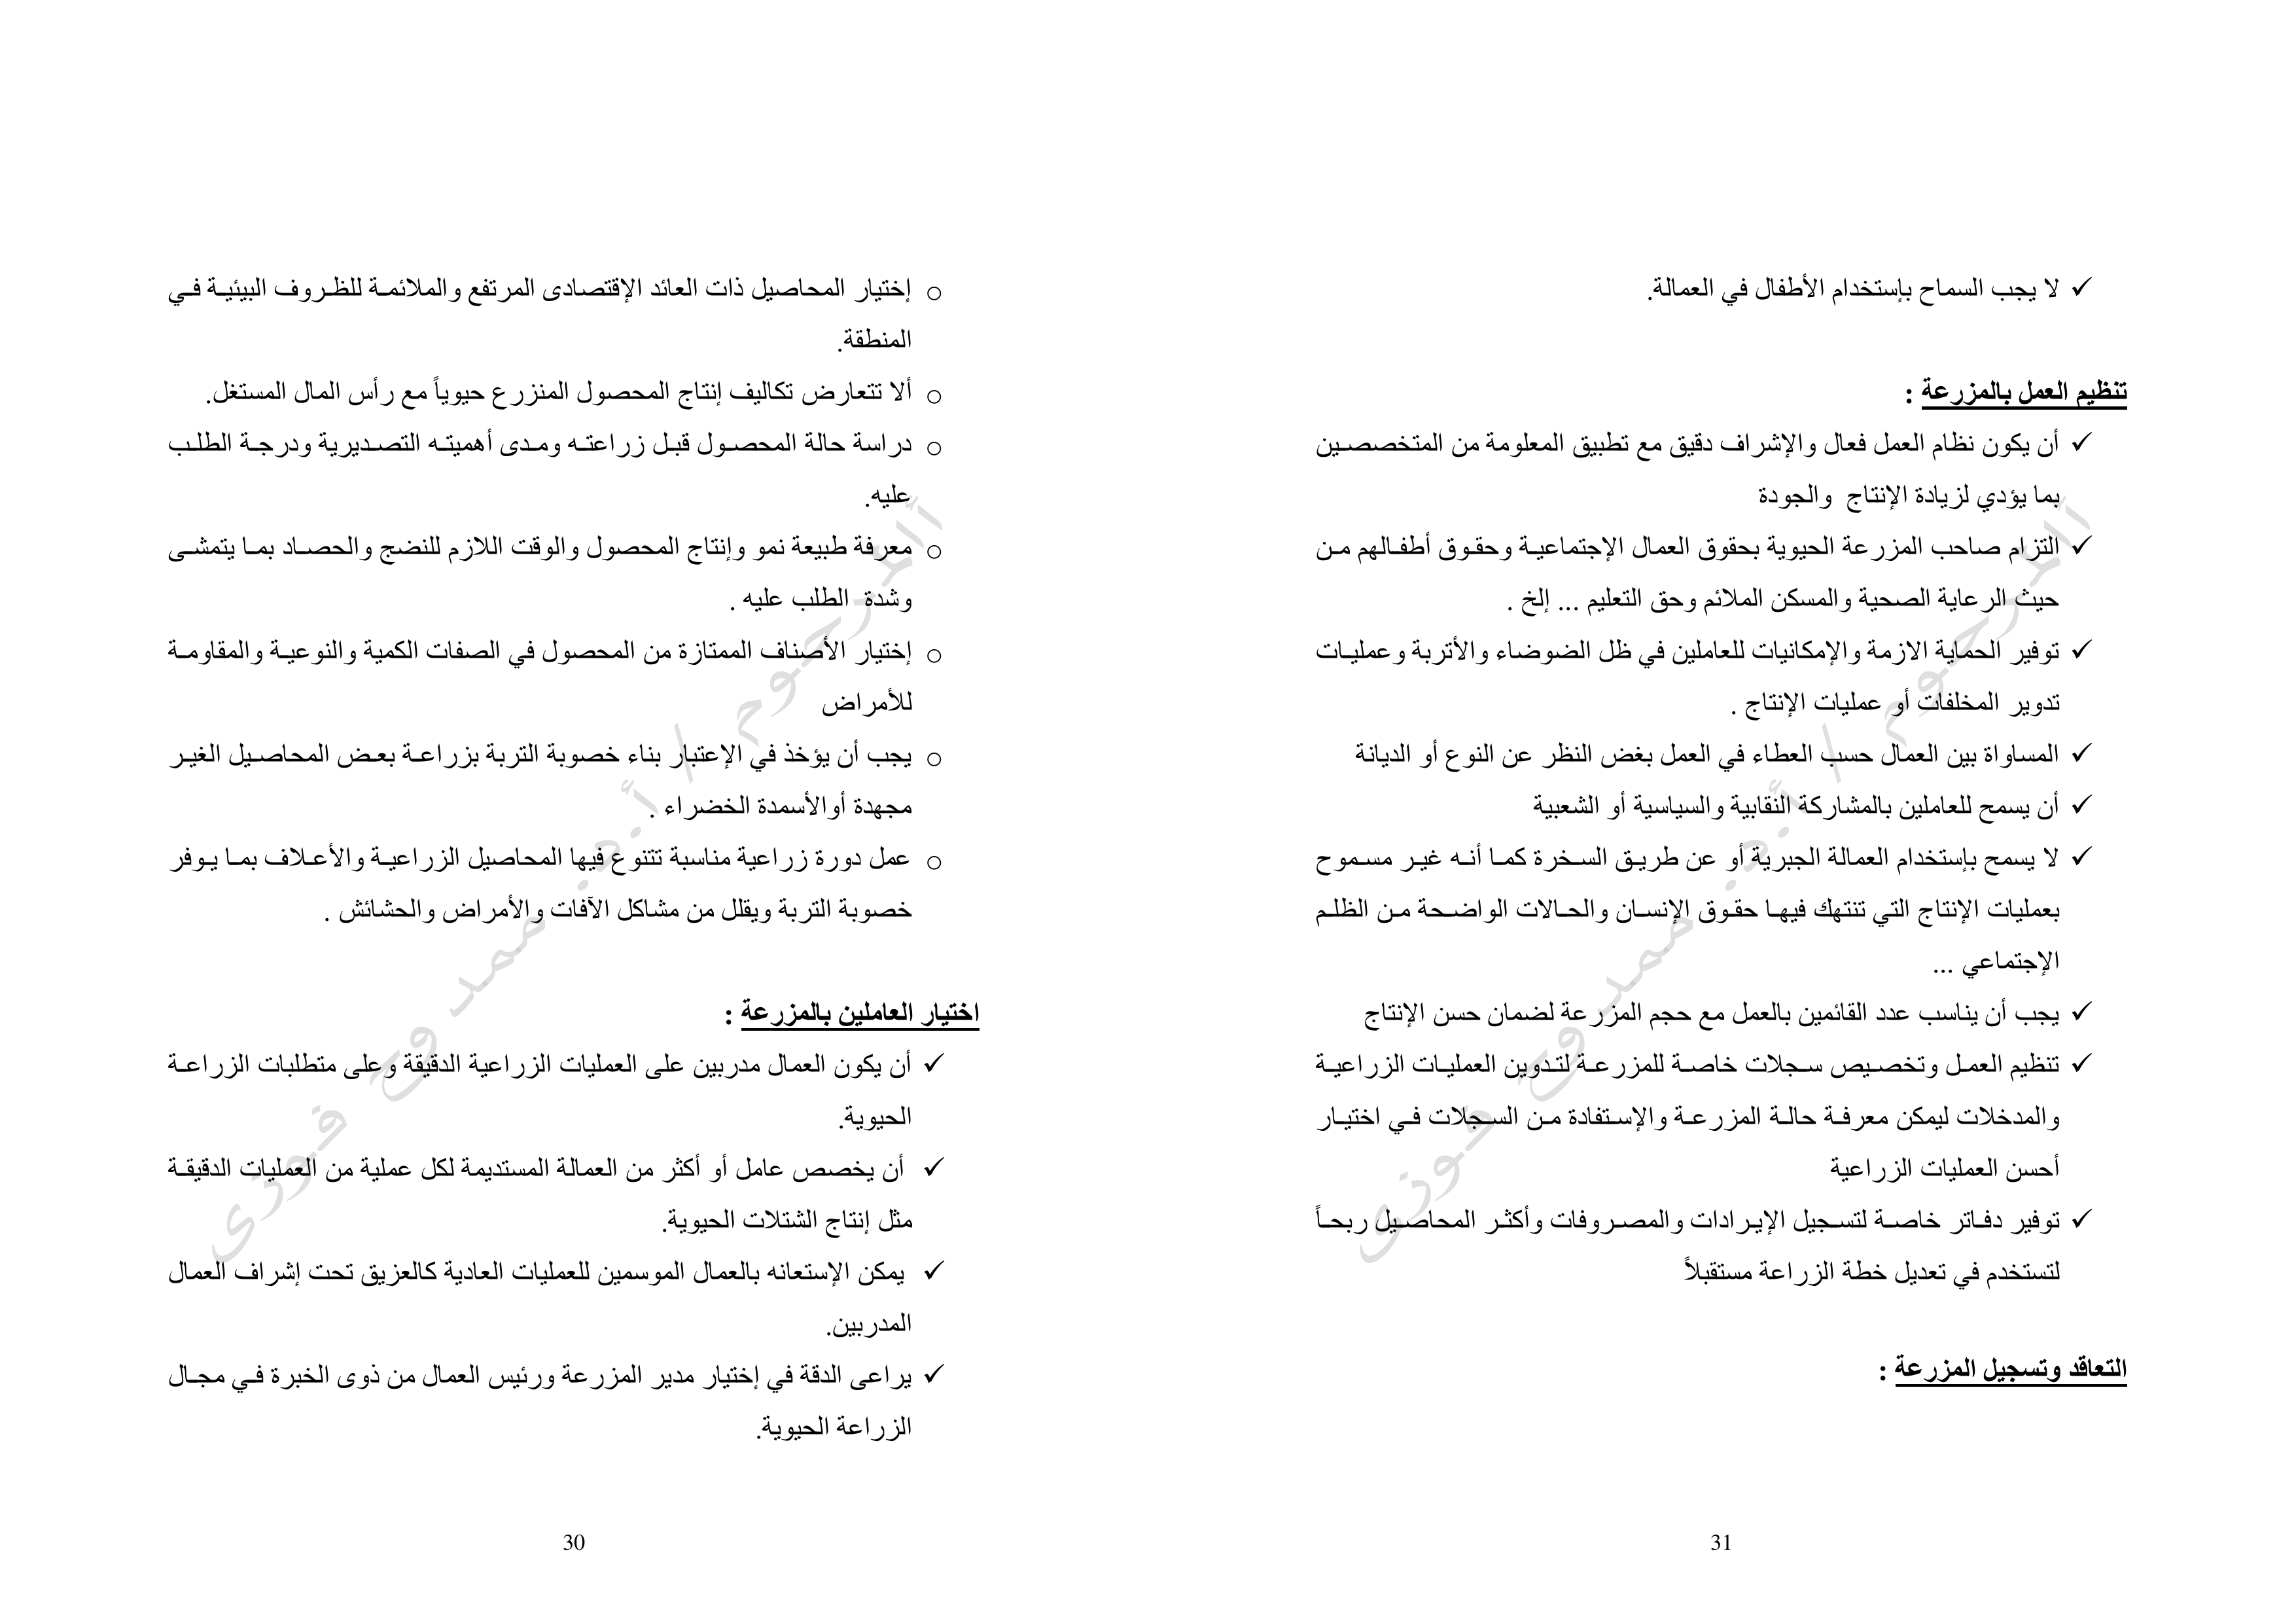 ○ إختيار المحاصيل ذات العائد الإقتصادى المرتفع والملائمة للظروف البيئية في
المنطقة.
○ ألا تتعارض تكاليف إنتاج المحصول المنزرع حيوياً مع رأس المال المستغل.
○ دراسة حالة المحصول قبل زراعته ومدى أهميته التصديرية ودرجة الطلب
عليه.
○ معرفة طبيعة نمو وإنتاج المحصول والوقت اللازم للنضج والحصاد بما يتمشى
وشدة الطلب عليه .
○ إختيار الأصناف الممتازة من المحصول في الصفات الكمية والنوعية والمقاومة
للأمراض
○ يجب أن يؤخذ في الإعتبار بناء خصوبة التربة بزراعة بعض المحاصيل الغير
مجهدة أوالأسمدة الخضراء .
○ عمل دورة زراعية مناسبة تتنوع فيها المحاصيل الزراعية والأعلاف بما يوفر
خصوبة التربة ويقلل من مشاكل الآفات والأمراض والحشائش .
اختيار العاملين بالمزرعة :
✓ أن يكون العمال مدربين على العمليات الزراعية الدقيقة وعلى متطلبات الزراعة
الحيوية.
✓ أن يخصص عامل أو أكثر من العمالة المستديمة لكل عملية من العمليات الدقيقة
مثل إنتاج الشتلات الحيوية.
✓ يمكن الإستعانه بالعمال الموسمين للعمليات العادية كالعزيق تحت إشراف العمال
المدربين.
✓ يراعى الدقة في إختيار مدير المزرعة ورئيس العمال من ذوى الخبرة في مجال
الزراعة الحيوية.
30
المرحوم / أ.د. ممدوح فوزى
✓ لا يجب السماح بإستخدام الأطفال في العمالة.
تنظيم العمل بالمزرعة :
✓ أن يكون نظام العمل فعال والإشراف دقيق مع تطبيق المعلومة من المتخصصين
بما يؤدي لزيادة الإنتاج والجودة
✓ التزام صاحب المزرعة الحيوية بحقوق العمال الإجتماعية وحقوق أطفالهم من
حيث الرعاية الصحية والمسكن الملائم وحق التعليم ... إلخ .
✓ توفير الحماية الازمة والإمكانيات للعاملين في ظل الضوضاء والأتربة وعمليات
تدوير المخلفات أو عمليات الإنتاج .
✓ المساواة بين العمال حسب العطاء في العمل بغض النظر عن النوع أو الديانة
✓ أن يسمح للعاملين بالمشاركة النقابية والسياسية أو الشعبية
✓ لا يسمح بإستخدام العمالة الجبرية أو عن طريق السخرة كما أنه غير مسموح
بعمليات الإنتاج التي تنتهك فيها حقوق الإنسان والحالات الواضحة من الظلم
الإجتماعي ...
✓ يجب أن يناسب عدد القائمين بالعمل مع حجم المزرعة لضمان حسن الإنتاج
✓ تنظيم العمل وتخصيص سجلات خاصة للمزرعة لتدوين العمليات الزراعية
والمدخلات ليمكن معرفة حالة المزرعة والإستفادة من السجلات في اختيار
أحسن العمليات الزراعية
✓ توفير دفاتر خاصة لتسجيل الإيرادات والمصروفات وأكثر المحاصيل ربحاً
لتستخدم في تعديل خطة الزراعة مستقبلاً
التعاقد وتسجيل المزرعة :
31
المرحوم / أ.د. ممدوح فوزى